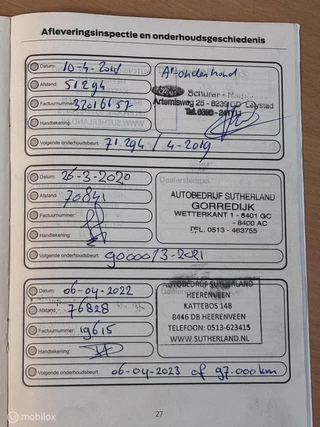 Afleveringsinspectie en onderhoudsgeschiedenis
Datum: 10-4-2018
Afstand: 51294
Factuurnummer: 32016657
Handtekening:
Volgende onderhoudsbeurt: 71.294 / 4-2019
onderhoud
Artemisweg 25 - 8239 DD Lelystad
Datum: 26-3-2020
Afstand: 70841
Factuurnummer:
Handtekening:
Volgende onderhoudsbeurt: 90000/3-2021
Dealerstempel
AUTOBEDRIJF SUTHERLAND
GORREDIJK
WETTERKANT 1 - 8401 GC
- 8400 AC
TEL. 0513 - 463755
Datum: 06-04-2022
Afstand: 76828
Factuurnummer: 19615
Handtekening:
Volgende onderhoudsbeurt: 06-04-2023 of 97.000 km
AUTOBEDRIJF SUTHERLAND
HEERENVEEN
KATTEBOS 148
8446 DB HEERENVEEN
TELEFOON: 0513-623415
WWW.SUTHERLAND.NL
27
mobilox